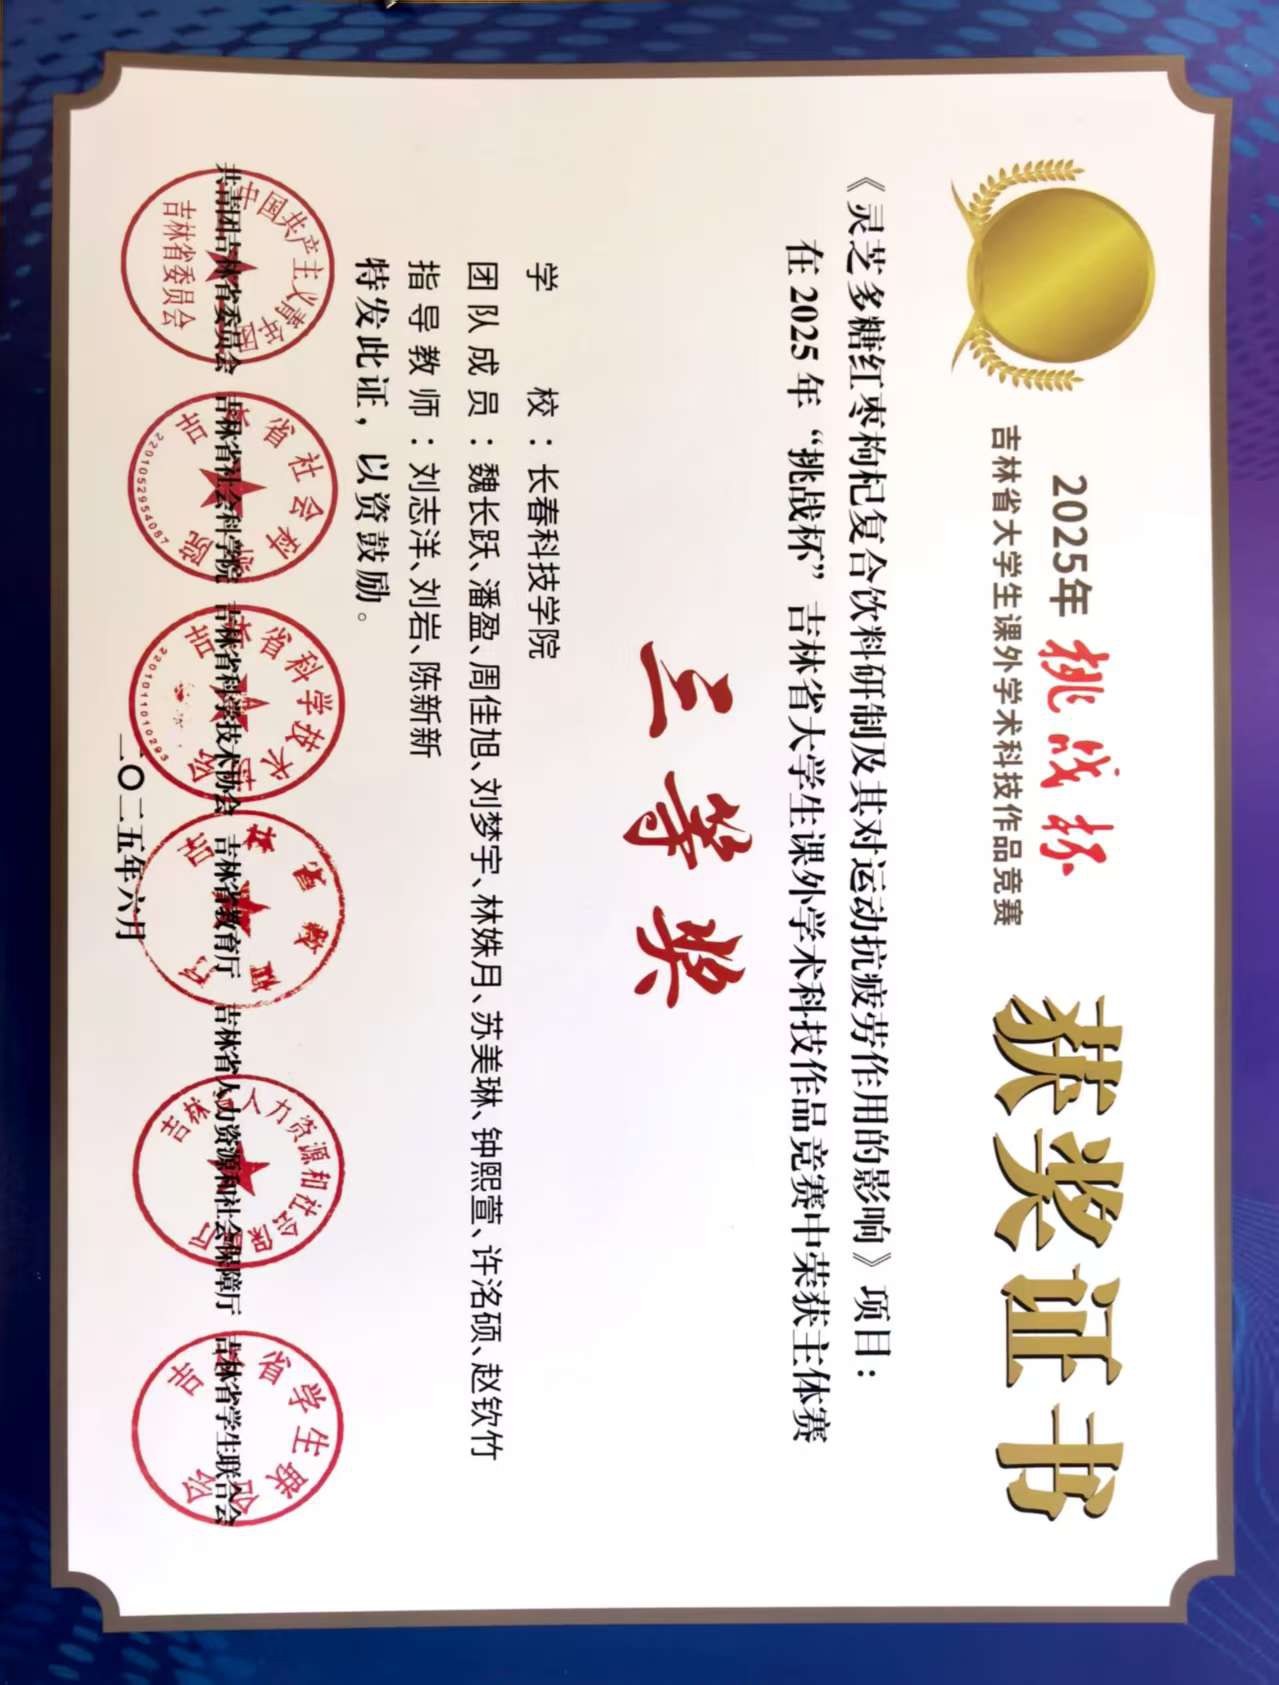 2025年 挑战杯
吉林省大学生课外学术科技作品竞赛
获奖证书
《灵芝多糖红枣枸杞复合饮料研制及其对运动抗疲劳作用的影响》项目：
在2025年“挑战杯”吉林省大学生课外学术科技作品竞赛中荣获主体赛
三等奖
学校：长春科技学院
团队成员：魏长跃、潘盈、周佳旭、刘梦宇、林姝月、苏美琳、钟熙萱、许洺硕、赵钦竹
指导教师：刘志洋、刘岩、陈新新
特发此证，以资鼓励。
共青团吉林省委员会 吉林省社会科学院 吉林省科学技术协会 吉林省教育厅 吉林省人力资源和社会保障厅 吉林省学生联合会
中国共产主义青年团
吉林省委员会
吉林省社会科学院
2201052954087
吉林省科学技术协会
2201011010293
吉林省教育厅
吉林省人力资源和社会保障厅
吉林省学生联合会
二〇二五年六月